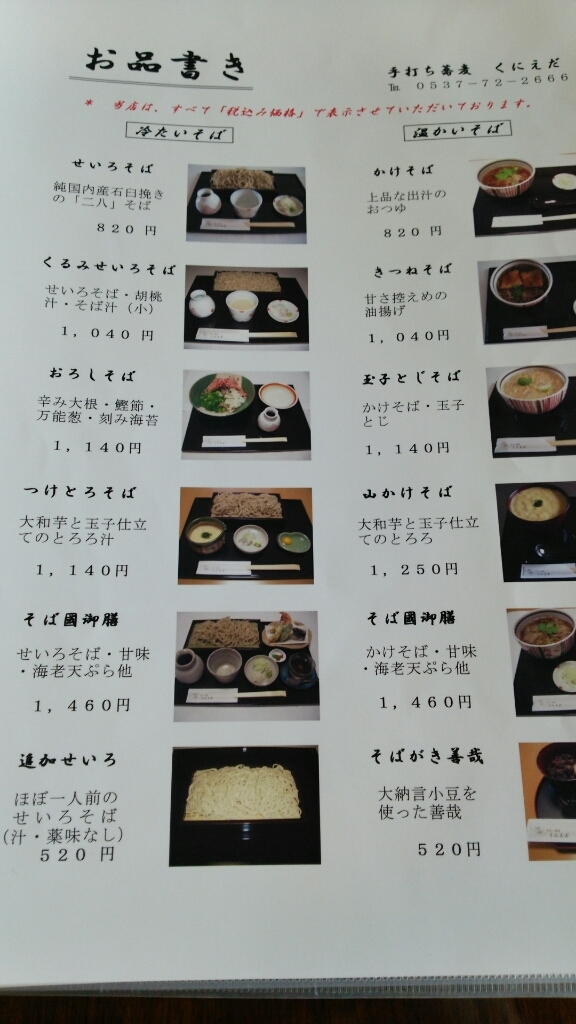 お品書き
手打ち蕎麦　くにえだ
℡ ０５３７－７２－２６６６
＊　当店は、すべて「税込み価格」で表示させていただいております。
冷たいそば
せいろそば
純国内産石臼挽き
の「二八」そば
８２０ 円
くるみせいろそば
せいろそば・胡桃
汁・そば汁（小）
１，０４０ 円
おろしそば
辛み大根・鰹節・
万能葱・刻み海苔
１，１４０円
つけとろそば
大和芋と玉子仕立
てのとろろ汁
１，１４０円
そば國御膳
せいろそば・甘味
・海老天ぷら他
１，４６０円
追加せいろ
ほぼ一人前の
せいろそば
（汁・薬味なし）
５２０ 円
温かいそば
かけそば
上品な出汁の
おつゆ
８２０ 円
きつねそば
甘さ控えめの
油揚げ
１，０４０円
玉子とじそば
かけそば・玉子
とじ
１，１４０円
山かけそば
大和芋と玉子仕立
てのとろろ
１，２５０円
そば國御膳
かけそば・甘味
・海老天ぷら他
１，４６０円
そばがき善哉
大納言小豆を
使った善哉
５２０円